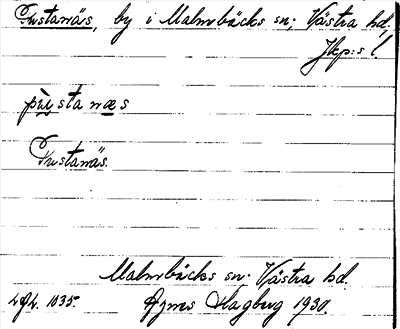 Pustanäs, by i Malmbäcks sn; Västra hd,
Jkp:s l.
pùstanæs
Pustanäs.
Malmbäcks sn. Västra hd.
1035. Agnes Hagberg 1930.